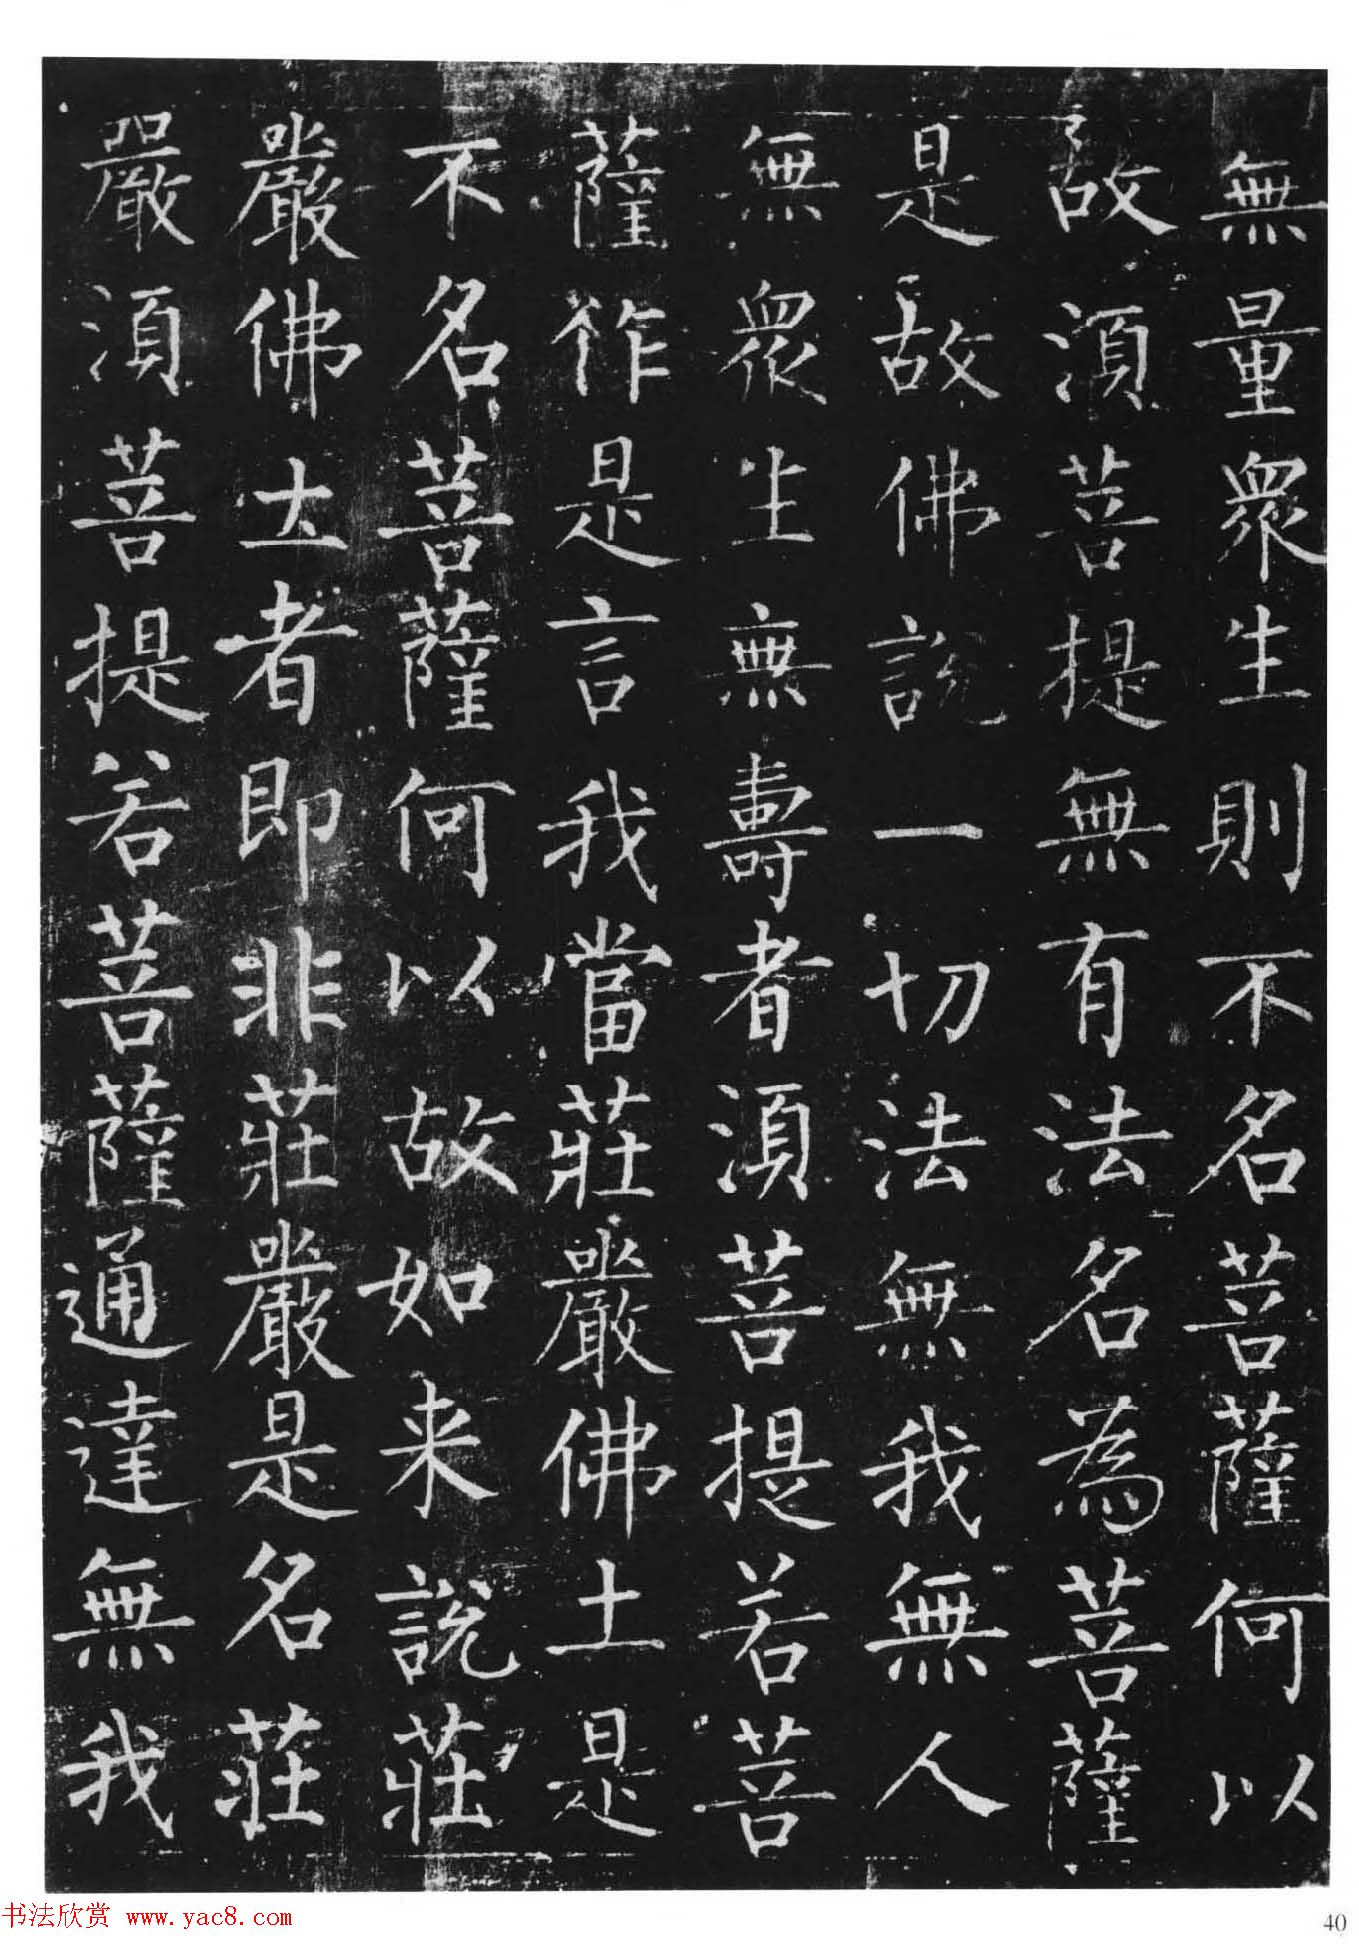 無量衆生則不名菩薩何以
故須菩提無有法名為菩薩
是故佛說一切法無我無人
無衆生無壽者須菩提若菩
薩作是言我當莊嚴佛土是
不名菩薩何以故如来說莊
嚴佛土者即非莊嚴是名莊
嚴須菩提若菩薩通達無我
书法欣赏 www.yac8.com
40